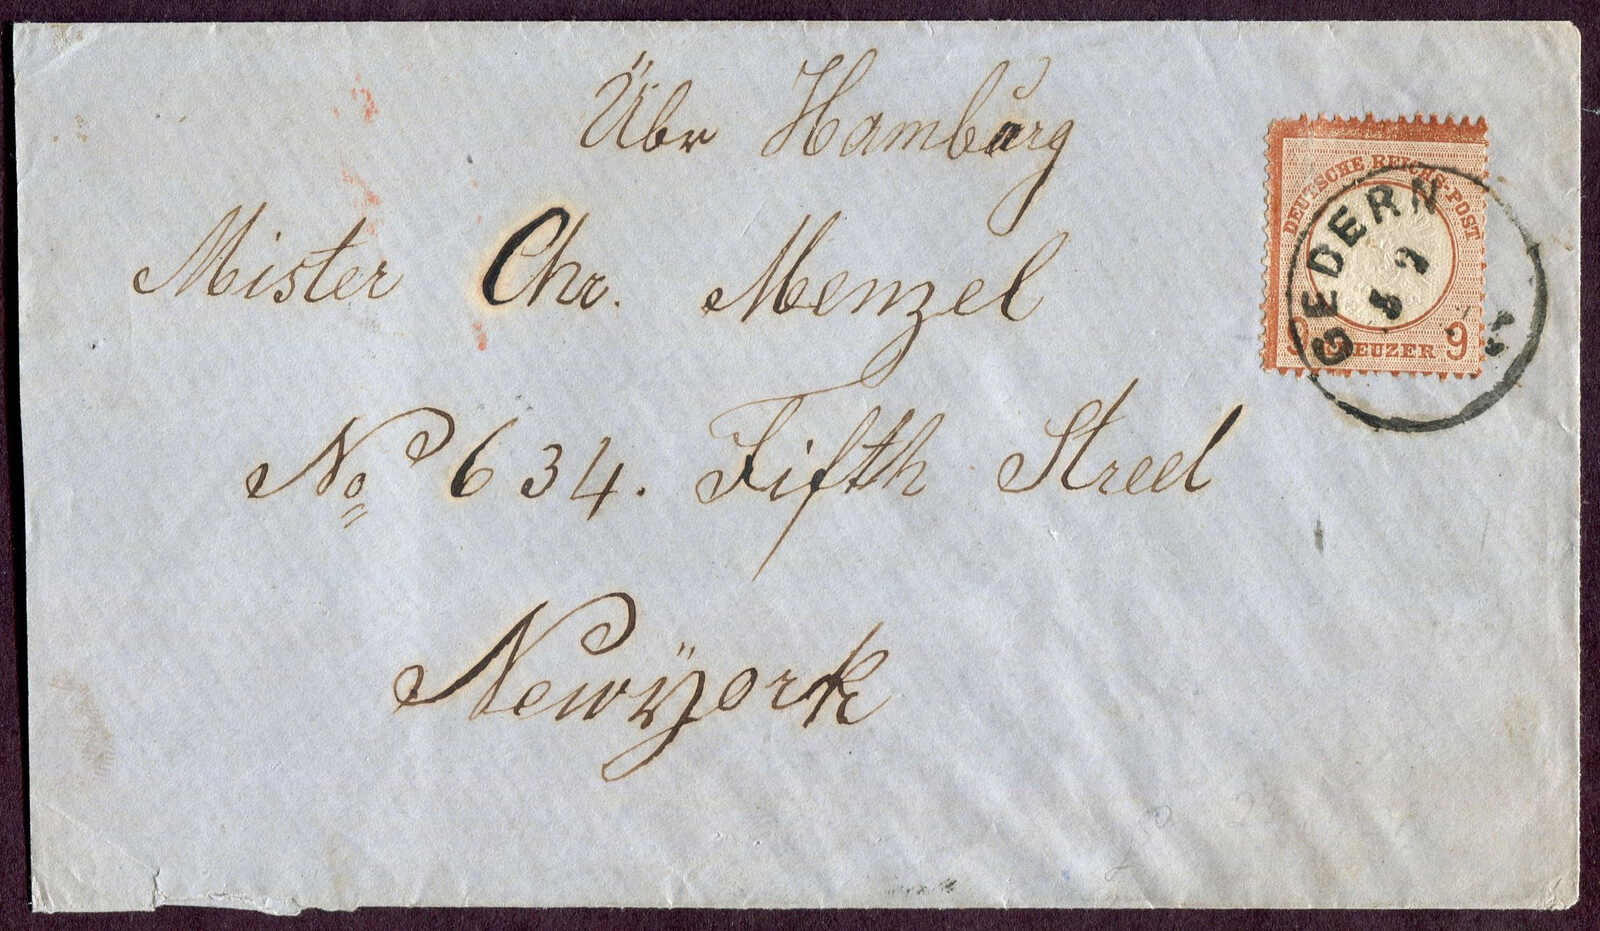 Übr Hamburg
Mister Chr. Menzel
No 634. Fifth Streel
Newÿork
DEUTSCHE REICHS-POST
9 KREUZER 9
GEDERN